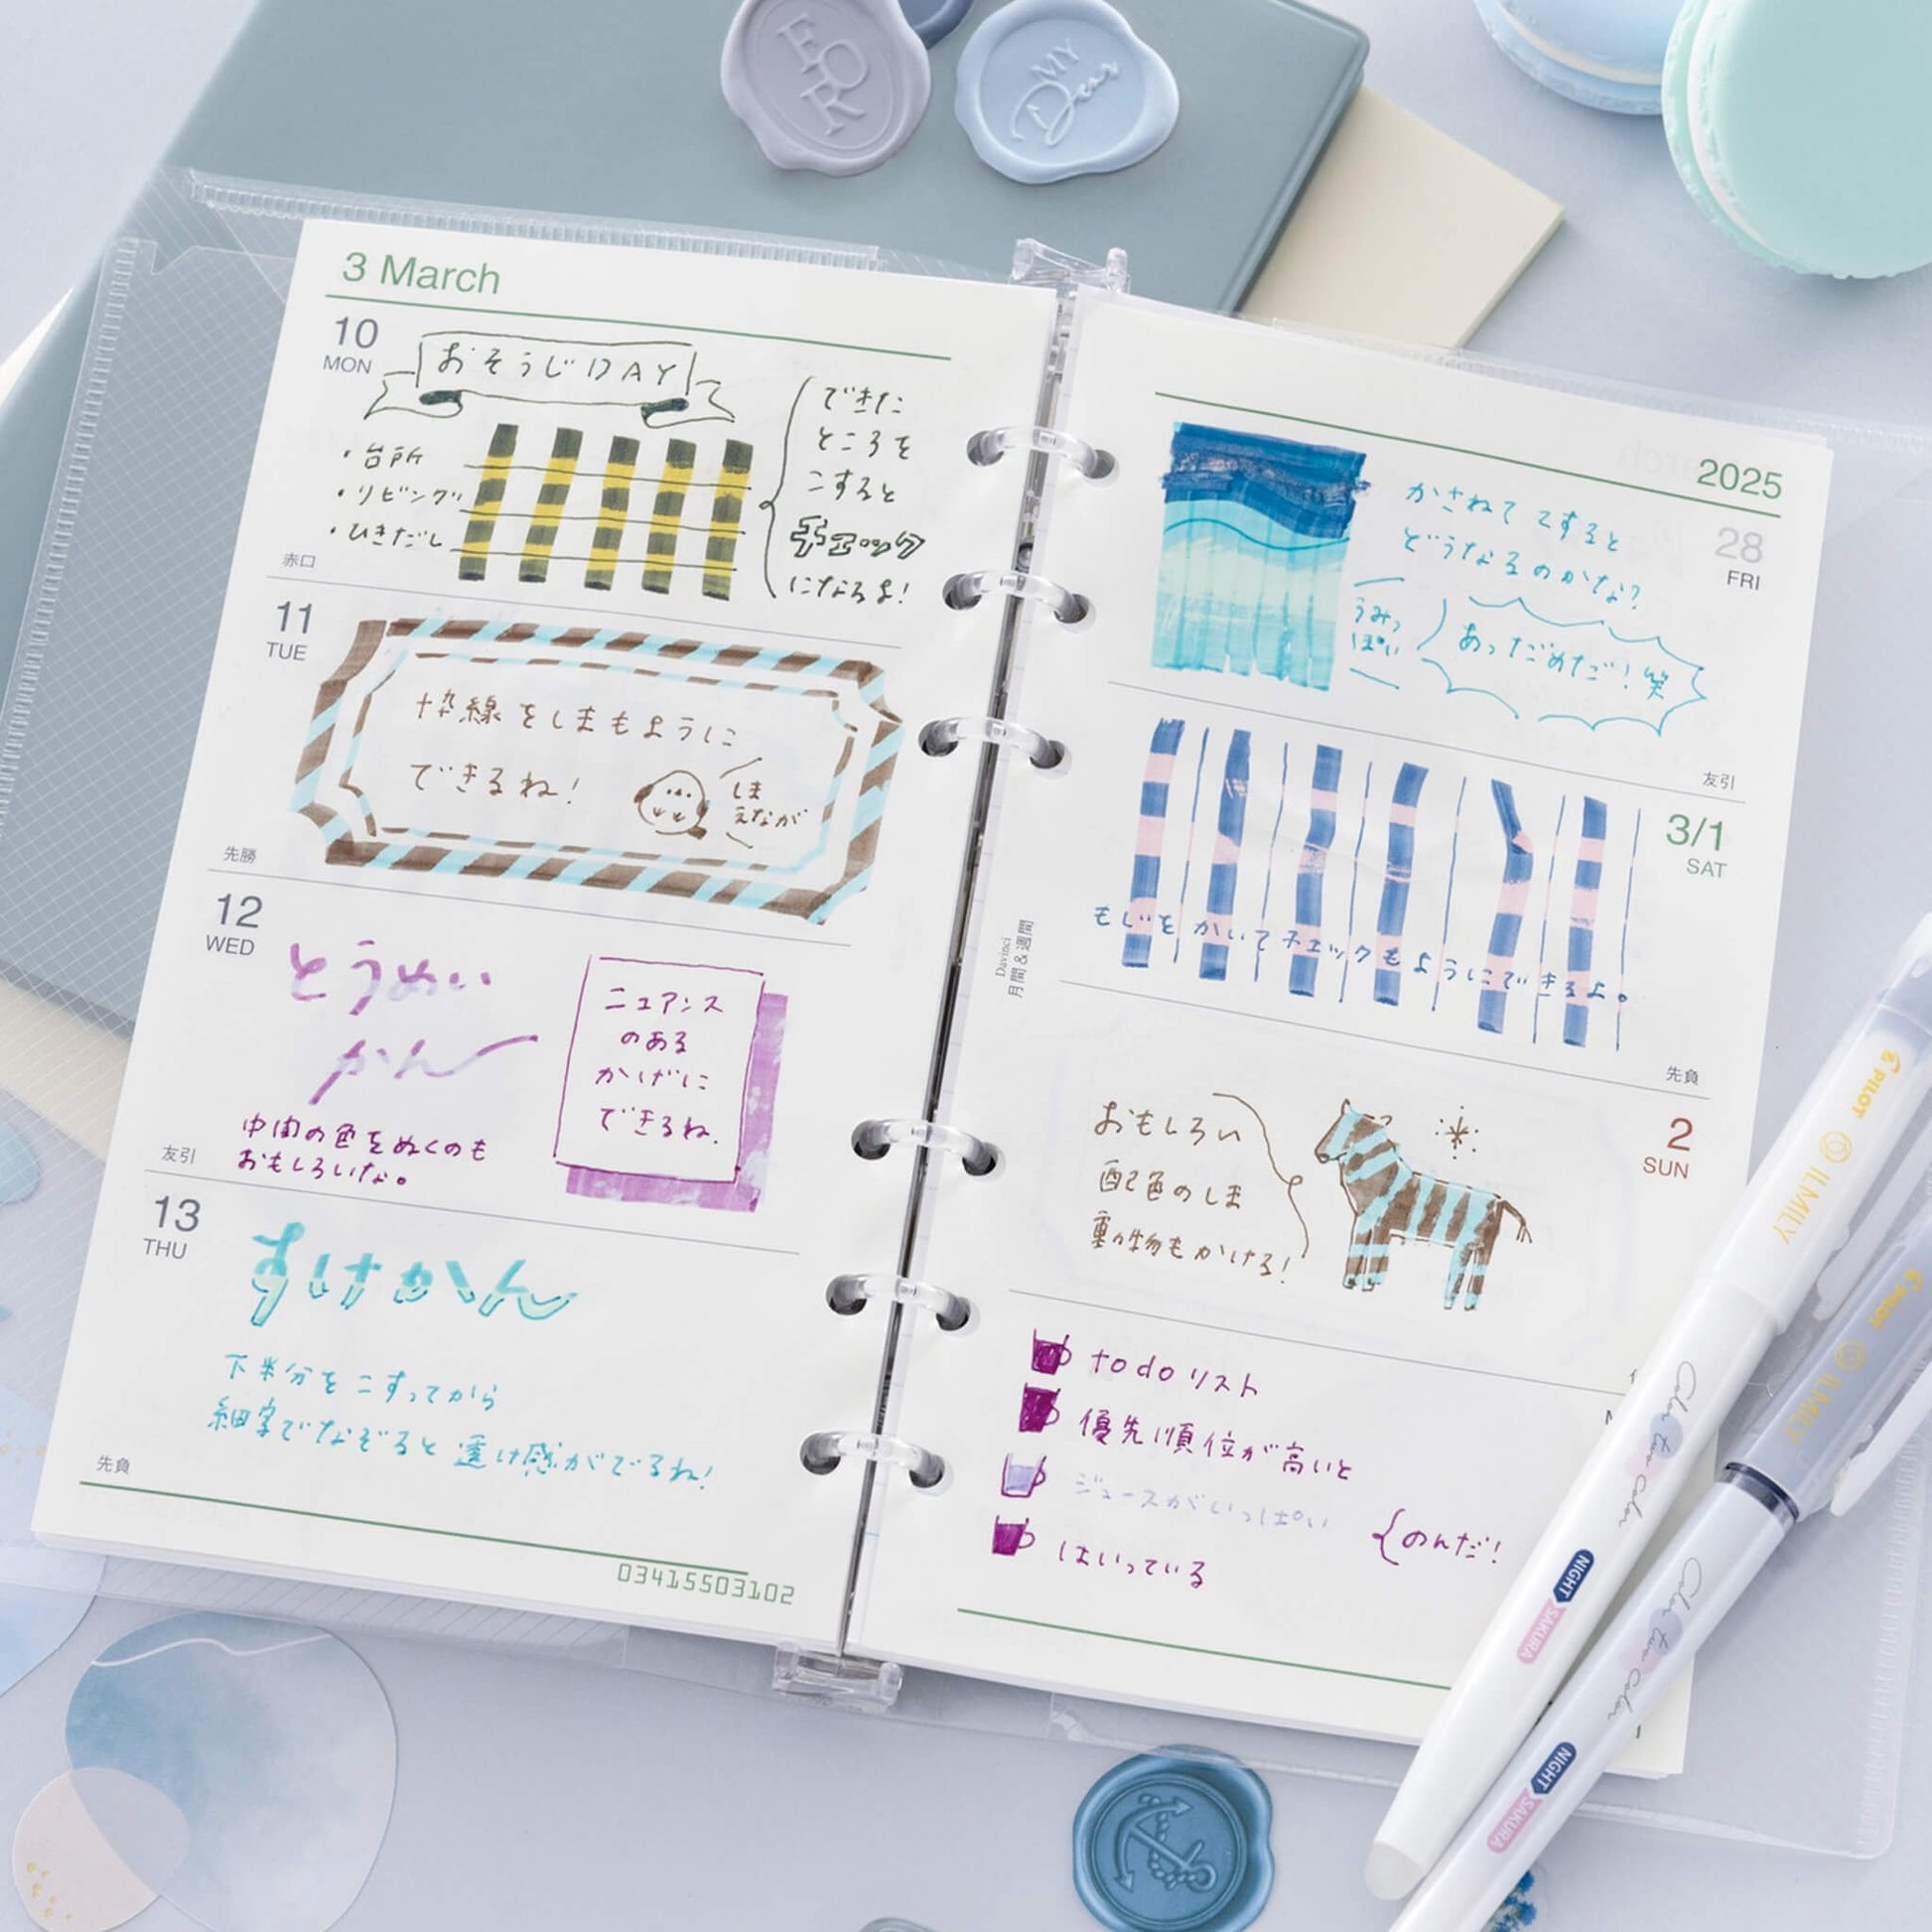 FOR
MY
Dear
3 March
10
MON
おそうじDAY
・台所
・リビング
・ひきだし
できた
ところを
こすると
チェック
になるよ!
赤口
11
TUE
枠線をしまもように
できるね!
しま
えなが
先勝
12
WED
とうめい
かん
中間の色をぬくのも
おもしろいな。
ニュアンス
のある
かげに
できるね.
友引
13
THU
すけかん
下半分をこすってから
細字でなぞると透け感がでるね!
先負
03415503102
Davinci
月間&週間
2025
28
FRI
かさねてこすると
どうなるのかな?
うみっ
ぽい
あっだめだ!笑
友引
3/1
SAT
もじをかいてチェックもようにできるよ。
先負
2
SUN
おもしろい
配色のしま
動物もかける!
to do リスト
優先順位が高いと
ジュースがいっぱい
はいっている
のんだ!
PILOT ILMILY
Color two color
NIGHT
SAKURA
PILOT ILMILY
Color two color
NIGHT
SAKURA